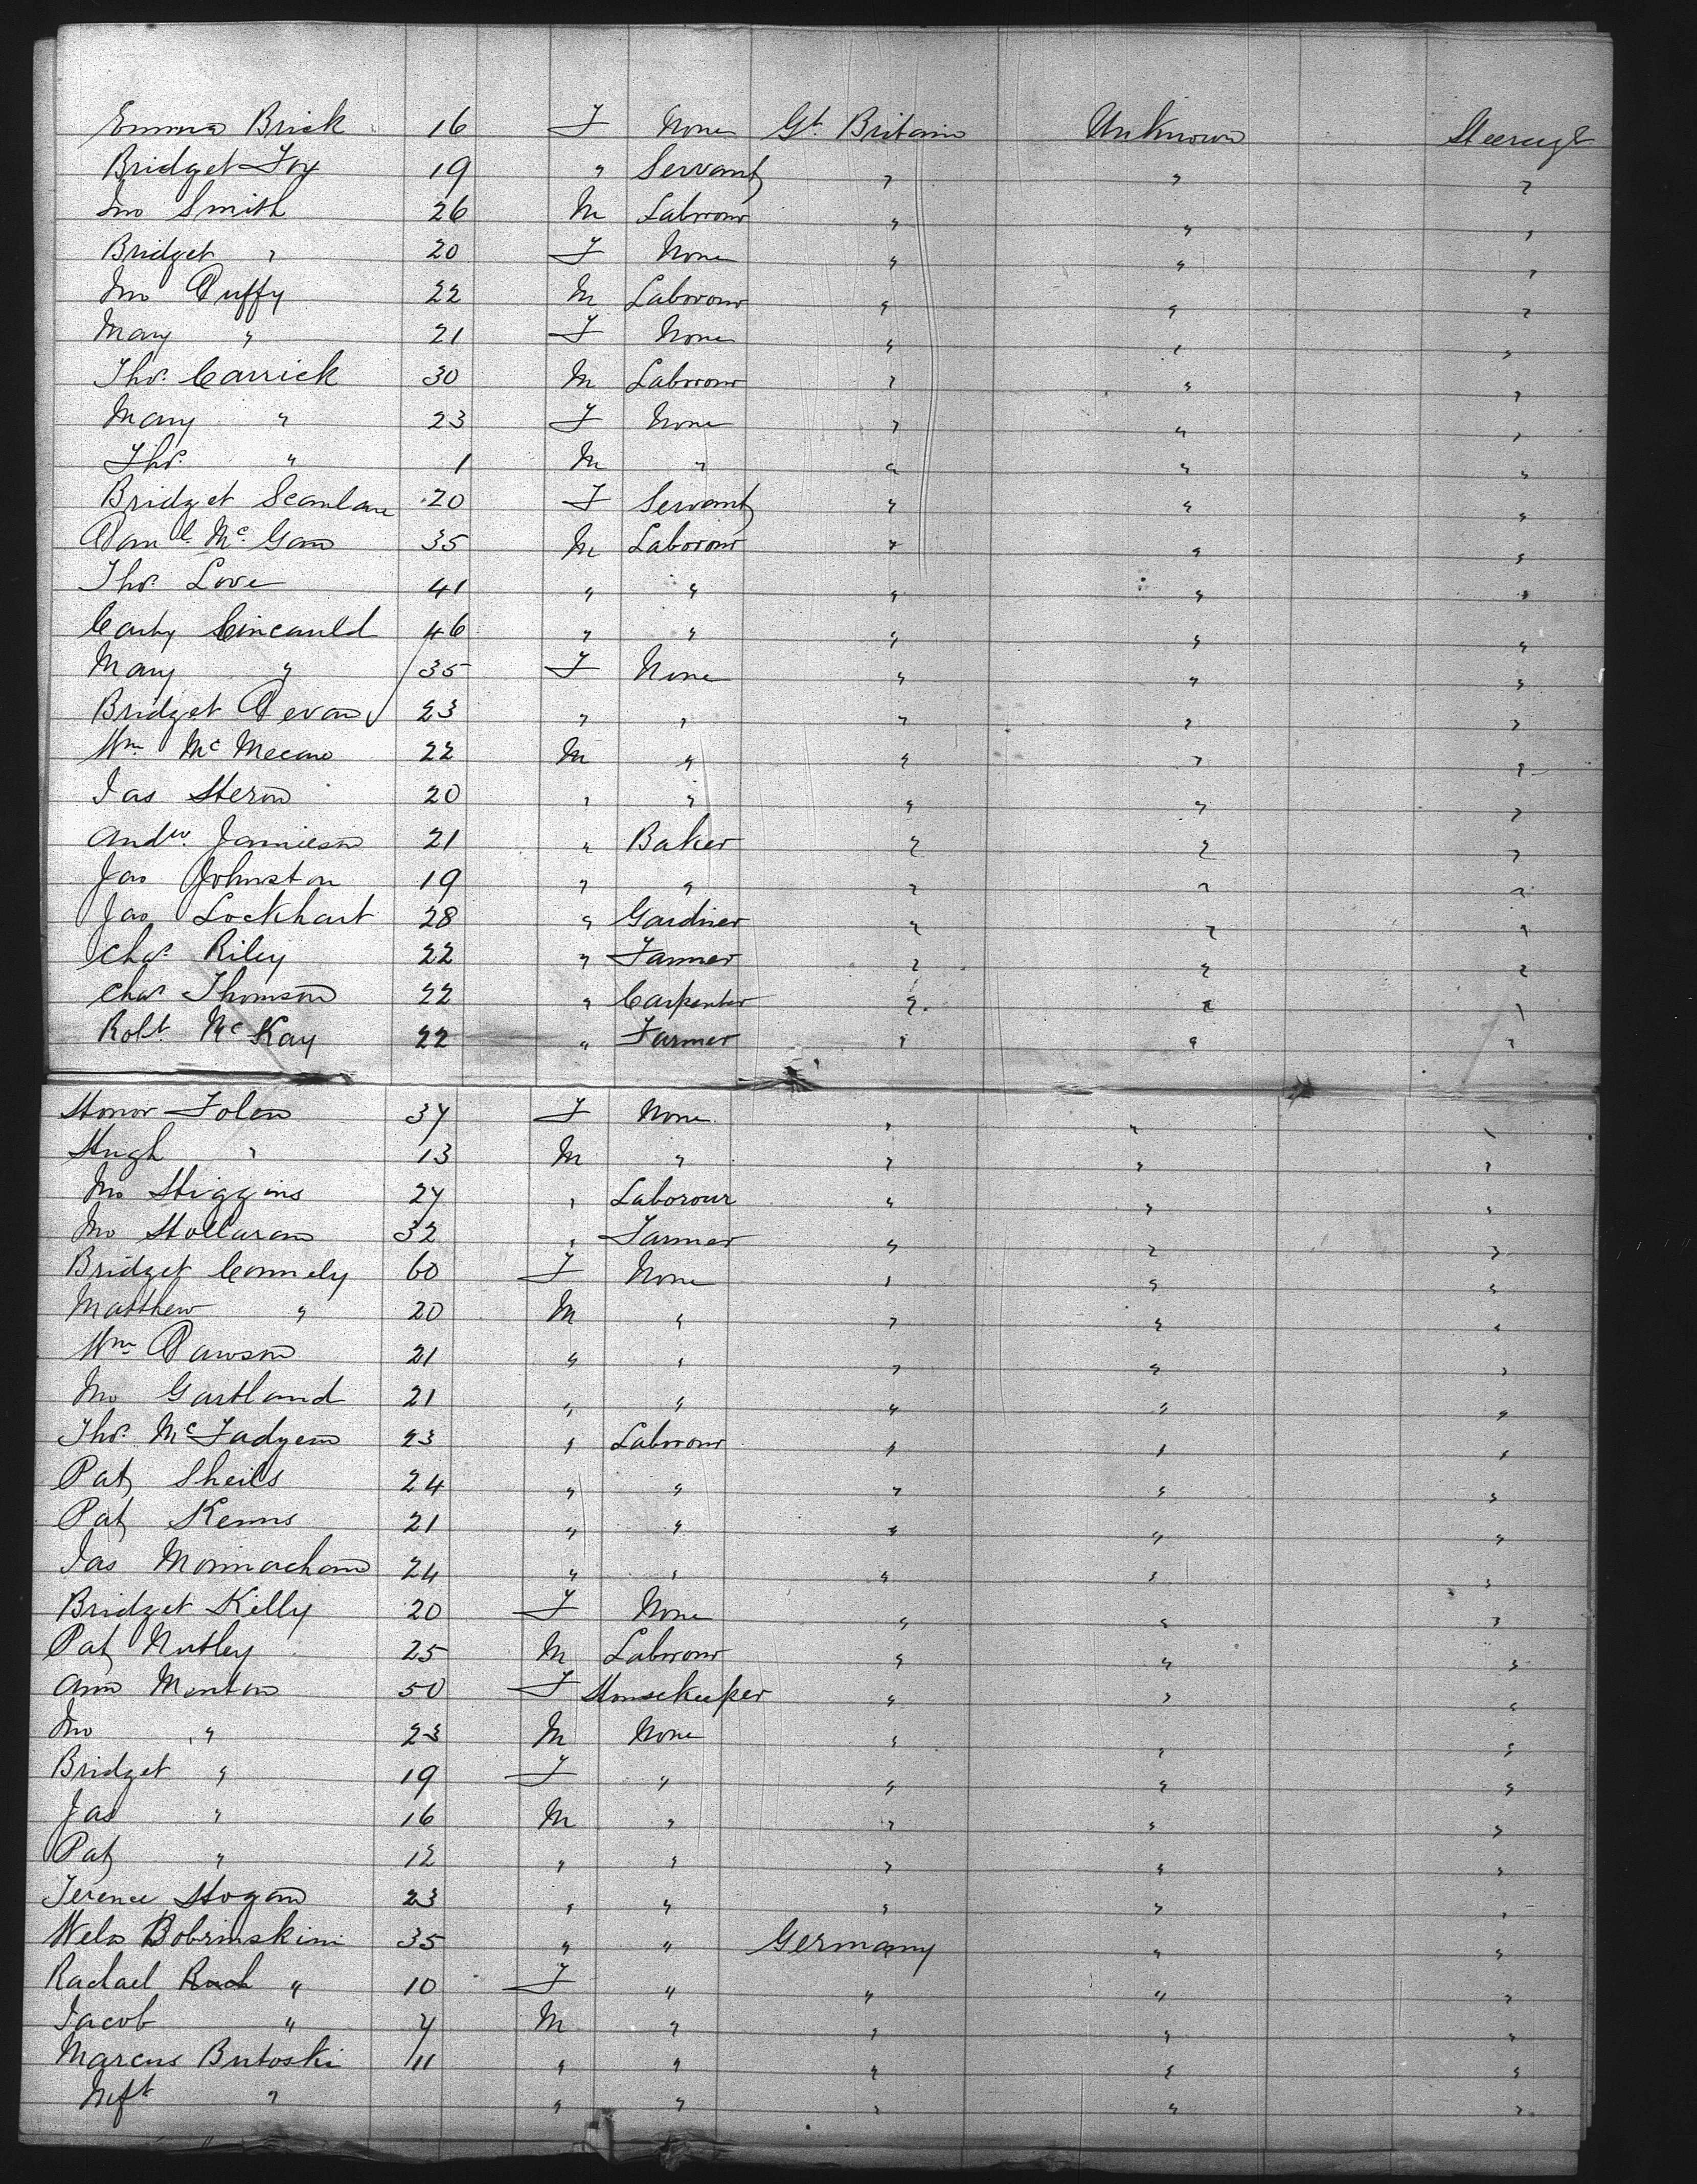 Emma Brick 16 F None Gt. Britain Unknown Steerage
Bridget Fox 19 " Servant " " "
Jno Smith 26 M Laborour " " "
Bridget " 20 F None " " "
Jno Duffy 22 M Laborour " " "
Mary " 21 F None " " "
Thos. Carrick 30 M Laborour " " "
Mary " 23 F None " " "
Thos. " 1 M " " " "
Bridget Scanlane 20 F Servant " " "
Danl. Mc. Gan 35 M Laborour " " "
Thos. Love 41 " " " " "
46 " " " " "
Mary " 35 F None " " "
Bridget Devan 23 " " " " "
Wm. Mc 22 M " " " "
Jas Heron 20 " " " " "
Andw. Jamieson 21 " Baker " " "
Jas Johnston 19 " " " " "
Jas Lockhart 28 " Gardiner " " "
Chas. Riley 22 " Farmer " " "
Chas Thomson 22 " Carpenter " " "
Robt. McKay 22 " Farmer " " "
Honor Folen 37 F None " " "
Hugh " 13 M " " " "
Jno Higgins 27 " Laborour " " "
Jno Holleran 32 " Farmer " " "
Bridget Connely 60 F None " " "
Matthew " 20 M " " " "
Wm Dawson 21 " " " " "
Jno Gartland 21 " " " " "
Thos. McFadyen 23 " Laborour " " "
Pat Sheils 24 " " " " "
Pat Kenns 21 " " " " "
Jas 24 " " " " "
Bridget Kelly 20 F None " " "
Pat Nutley 25 M Laborour " " "
Ann Menton 50 F Housekeeper " " "
Jno " 23 M None " " "
Bridget " 19 F " " " "
Jas " 16 M " " " "
Pat " 12 " " " " "
Terence Hogan 23 " " " " "
Bobrinskini 35 " " Germany " "
Rachael Ruch " 10 F " " " "
Jacob " 7 M " " " "
Marcus Butoski 11 " " " " "
" " " " " "